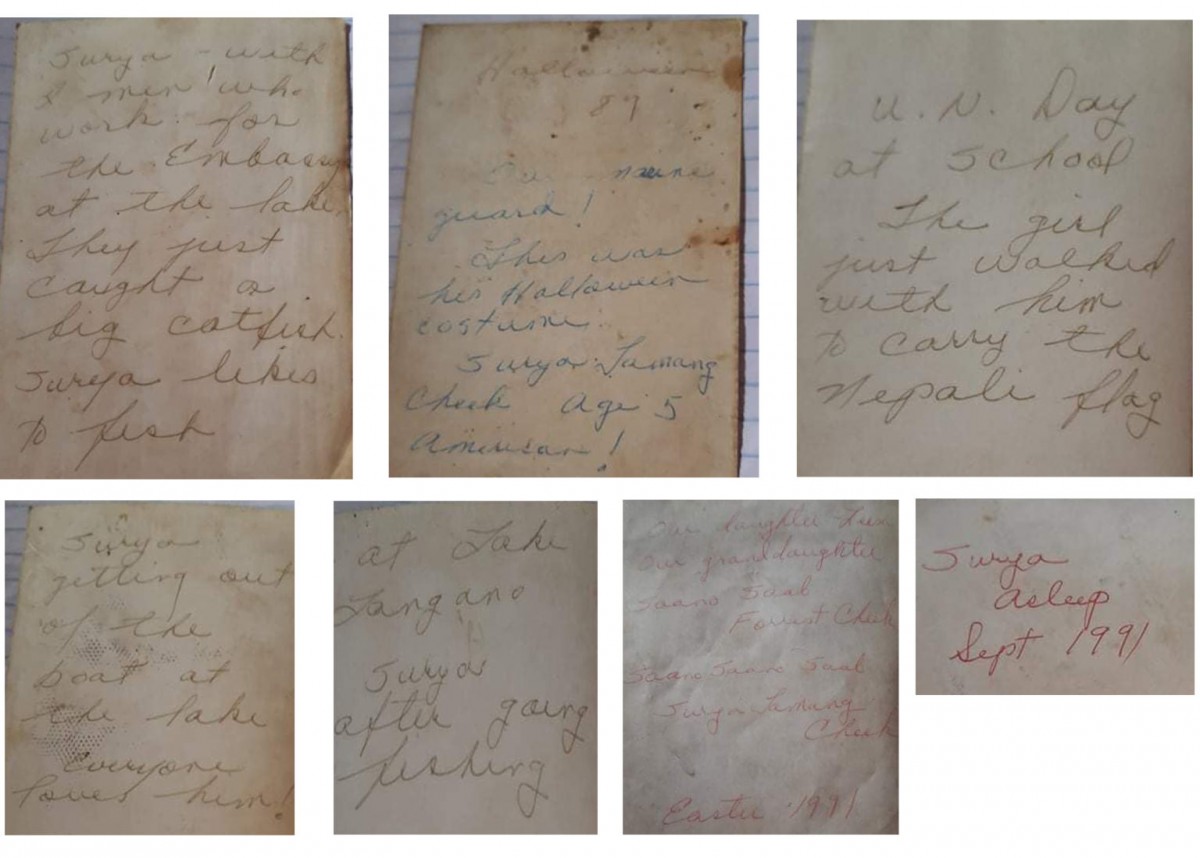 Surya - with
2 men who
work for
the Embassy
at the lake.
They just
caught a
big catfish.
Surya likes
to fish
Halloween
89
Our marine
guard!
This was
his Halloween
costume.
Surya Tamang
Cheek Age 5
American!
U.N. Day
at School
The girl
just walked
with him
to carry the
Nepali flag
Surya
getting out
of the
boat at
the lake
Everyone
loves him!
at Lake
Langano
Surya
after going
fishing
Our daughter
Our granddaughter
Saano Saab
Forrest Cheek
Saano Saano Saab
Surya Tamang
Cheek
Easter 1991
Surya
asleep
Sept 1991